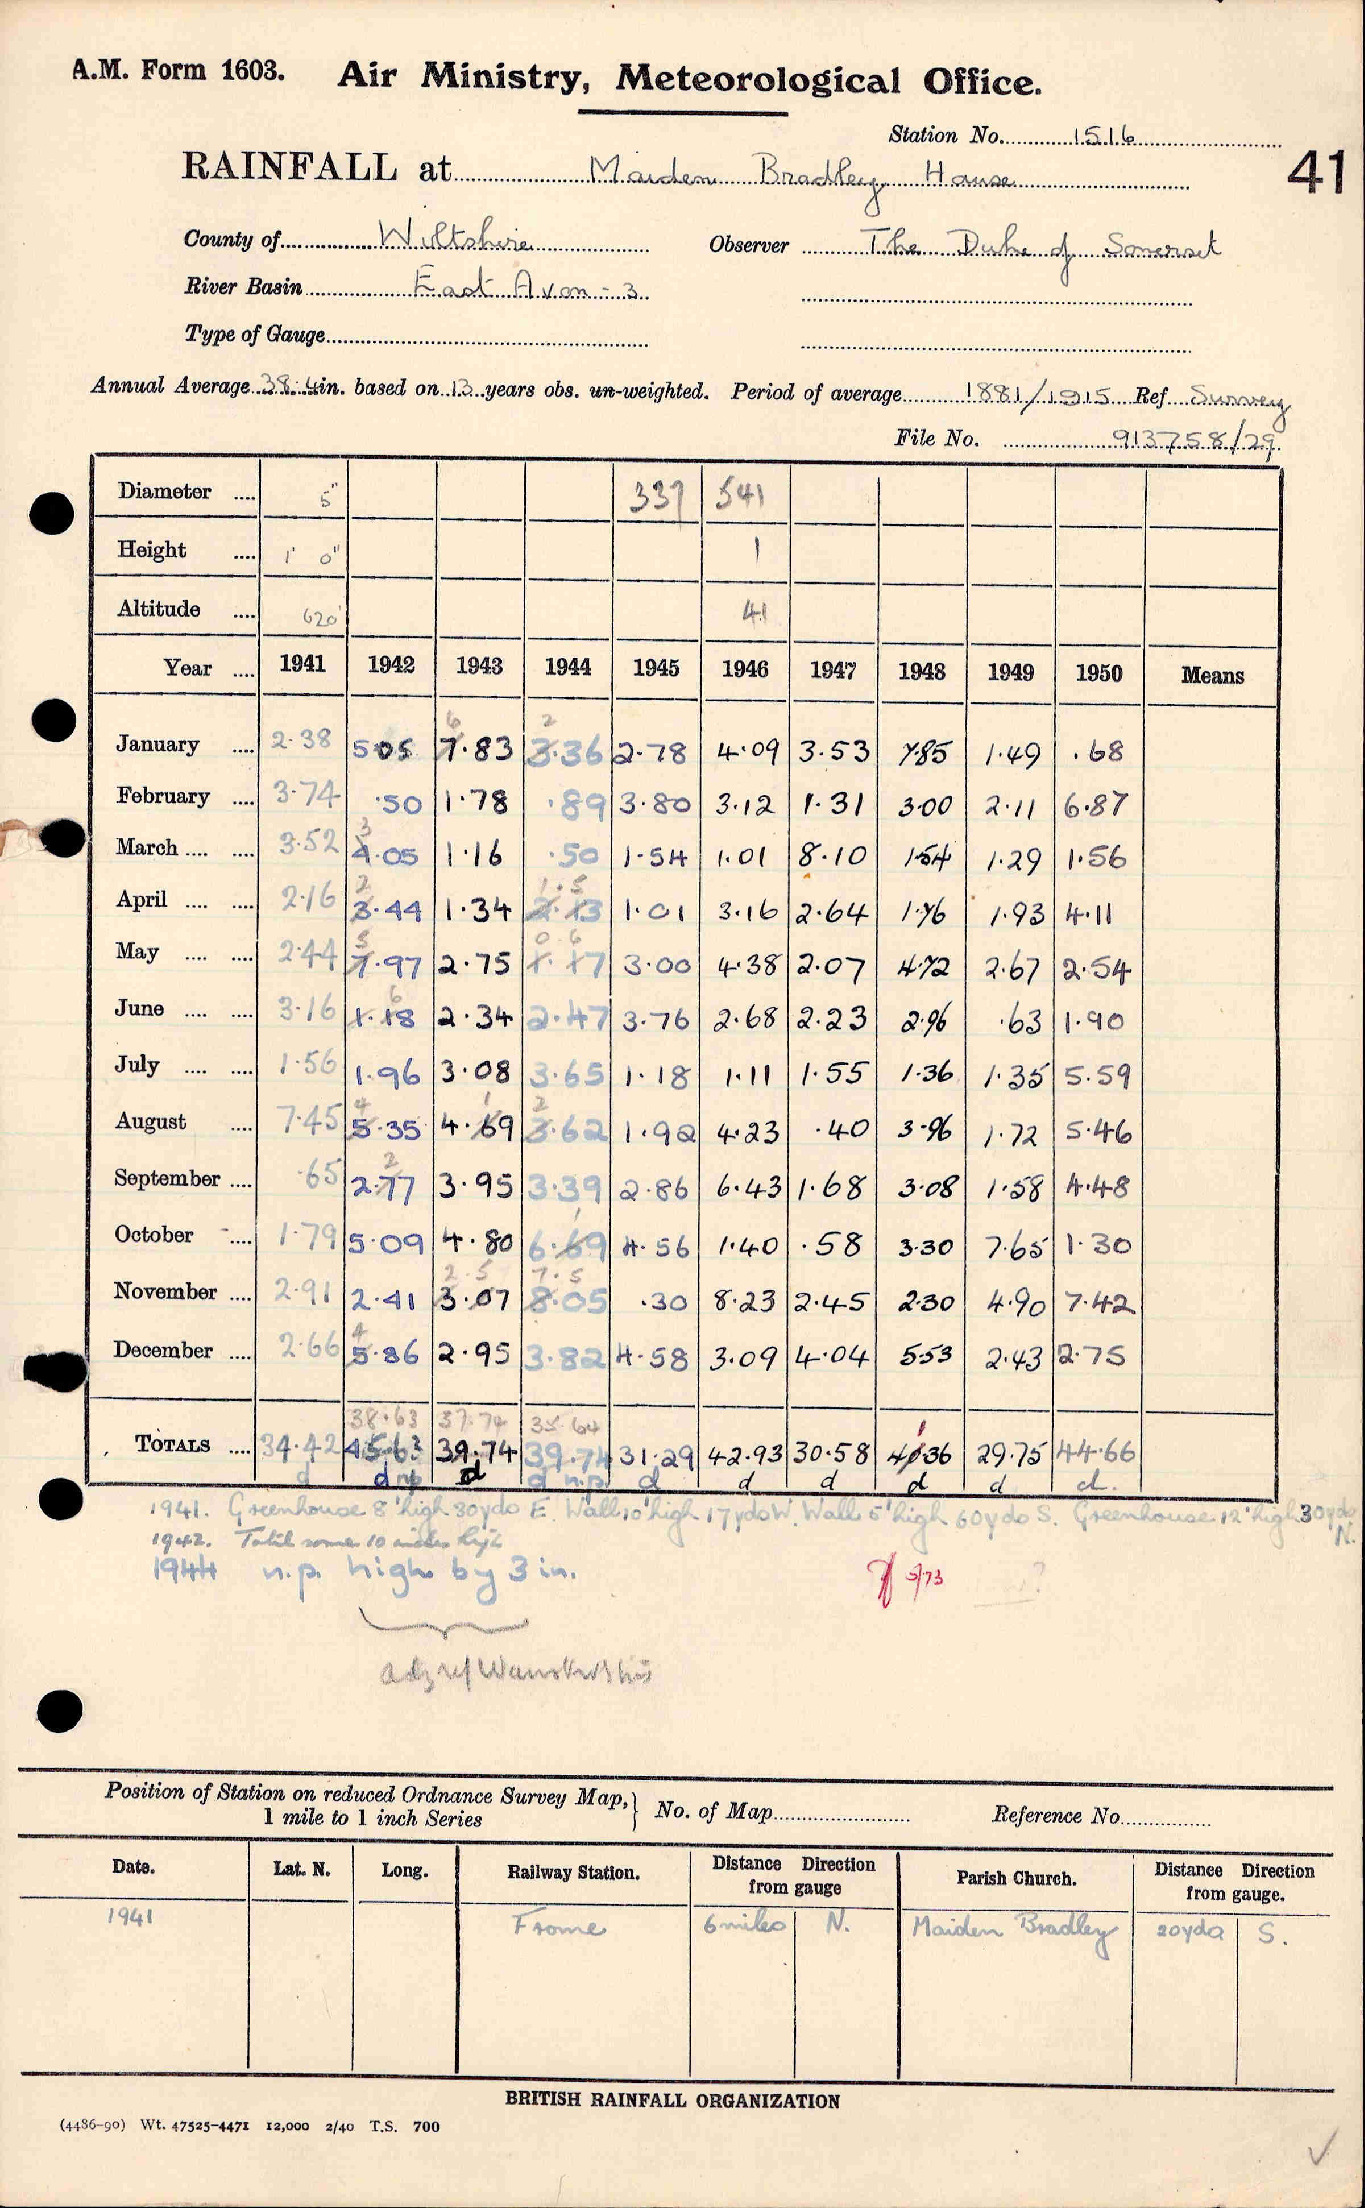 A.M. Form 1603. Air Ministry, Meteorological Office.
Station No. 1516
41
RAINFALL at Maiden Bradley House
County of Wiltshire Observer The Duke of Somerset
River Basin East Avon - 3
Type of Gauge
Annual Average 38.4 in. based on 13 years obs. un-weighted. Period of average 1881/1915 Ref Survey
File No. 913758/29
Diameter .... 5" 337 541
Height .... 1' 0" 1
Altitude .... 620' 41
Year .... 1941 1942 1943 1944 1945 1946 1947 1948 1949 1950 Means
6 2
January .... 2.38 5.05 7.83 3.36 2.78 4.09 3.53 7.85 1.49 .68
February .... 3.74 .50 1.78 .89 3.80 3.12 1.31 3.00 2.11 6.87
3
March .... .... 3.52 4.05 1.16 .50 1.54 1.01 8.10 1.54 1.29 1.56
2 1.5
April .... .... 2.16 3.44 1.34 2.13 1.01 3.16 2.64 1.76 1.93 4.11
5 0 6
May .... .... 2.44 7.97 2.75 1.17 3.00 4.38 2.07 4.72 2.67 2.54
6
June .... .... 3.16 1.18 2.34 2.47 3.76 2.68 2.23 2.96 .63 1.90
July .... .... 1.56 1.96 3.08 3.65 1.18 1.11 1.55 1.36 1.35 5.59
4 1 2
August .... 7.45 5.35 4.69 3.62 1.92 4.23 .40 3.96 1.72 5.46
2
September .... .65 2.77 3.95 3.39 2.86 6.43 1.68 3.08 1.58 4.48
1
October .... 1.79 5.09 4.80 6.69 4.56 1.40 .58 3.30 7.65 1.30
2.5 7.5
November .... 2.91 2.41 3.07 8.05 .30 8.23 2.45 2.30 4.90 7.42
4
December .... 2.66 5.86 2.95 3.82 4.58 3.09 4.04 5.53 2.43 2.75
38.63 37.74 35.64 1
TOTALS .... 34.42 45.63 39.74 39.74 31.29 42.93 30.58 40.36 29.75 44.66
d d np d d n.p. d d d d d d.
1941. Greenhouse 8' high 30yds E. Wall 10' high 17yds W. Wall 5' high 60yds S. Greenhouse 12' high 30yds
N.
1942. Total some 10 inches high
1944 n.p. high by 3 in.
5/73
?
Position of Station on reduced Ordnance Survey Map,
1 mile to 1 inch Series
No. of Map Reference No.
Date. Lat. N. Long. Railway Station. Distance Direction from gauge Parish Church. Distance Direction from gauge.
1941 Frome 6 miles N. Maiden Bradley 20yds S.
BRITISH RAINFALL ORGANIZATION
(4486-90) Wt. 47525-4471 12,000 2/40 T.S. 700